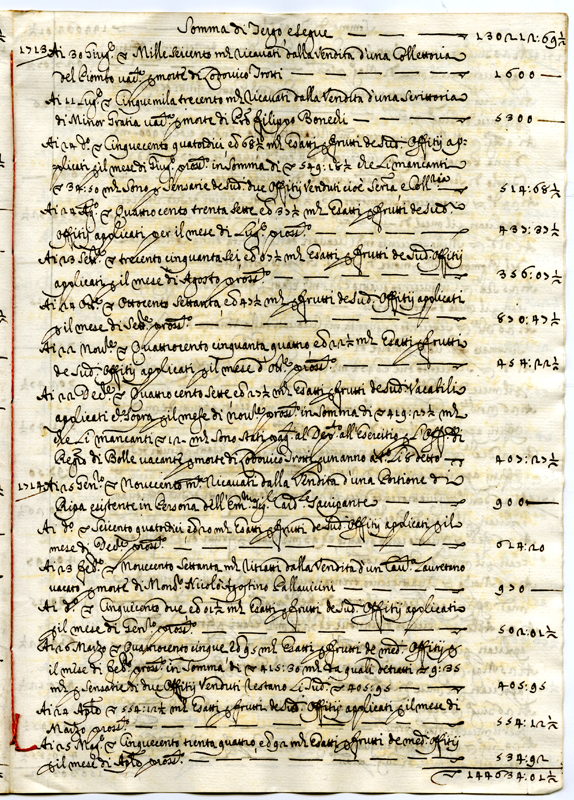 Somma di tergo e segue — — 130212:69½
1713 Ai 30 Giug.o ∇ Mille seicento m.ta ricavati dalla Vendita d'una Collettoria
del Piombo vac.ta p morte di Lodovico Troti — — 1600 —
Ai 11 Lug.o ∇ Cinquemila trecento m.ta ricavati dalla Vendita d'una Scrittoria
di Minor Gratia vac.ta p morte di Filippo Bonedi — — 5300 —
Ai d.o ∇ Cinquecento quatordici ed 68½ m.ta Esatti p frutti de Sud. Offitij ap-
plicati p il mese di Giug.o pross.o in Somma di ∇ 549:18½ che li mancanti
∇ 34:50 m.ta Sono p Sensarie de Sud. due Offitij Venduti cioè Scria e Coll.ria 514:68½
∇ Quattro cento trenta Sette ed 33½ m.ta Esatti p frutti de Sud.
Offitij applicati per il mese di Lug.o pross.o — — 437:33½
Ai 23 Sett.e ∇ trecento cinquanta sei ed 03½ m.ta Esatti p frutti de Sud. Offitij
applicati p il mese di Agosto pross.o — — 356:03½
∇ Ottocento Settanta ed 43½ m.ta p frutti de Sud. Offitij applicati
p il mese di Seb.e pross.o — — 870:43½
Ai 22 Nov.e ∇ Quattrocento cinquanta quattro ed 22½ m.ta Esatti p frutti
de Sud. Offitij applicati p il mese d'Ob.e pross.o — — 454:22½
Ai 22 Dec.e ∇ Quattro cento Sette ed 23½ m.ta Esatti p frutti de Sud. Vacabili
applicati c.e Sopra p il mese di nov.e pross.o in Somma di ∇ 419:23½ m.ta
che li mancanti ∇ 12 m.ta Sono Stati pag.ti al Dep.o all'Esercitio p l'Off.o di
Reg.o di Bolle vacante p morte di Lodovico Troti p un anno — 407:23½
1714 Ai 25 Gen.o ∇ Novecento m.ta ricavati dalla Vendita d'una Portione di
Ripa esistente in Persona dell'Em.o Sig. Card. Sacripante — 900 —
Ai d.o ∇ Seicento quatordici ed 20 m.ta Esatti p frutti de Sud. Offitij applicati p il
mese di Dec.e pross.o — — 614:20
Ai 23 Feb.o ∇ Novecento Settanta m.ta ritratti dalla Vendita d'un Cau.to Lauretano
vacato p morte di Mons.r Nicolò Agostino Pallavicini — 970 —
Ai d.o ∇ Cinquecento due ed 01½ m.ta Esatti p frutti de Sud. Offitij applicati
p il mese di Gen.o pross.o — — 502:01½
Ai 26 Marzo ∇ Quattrocento cinque ed 95 m.ta Esatti p frutti de med. Offitij p
il mese di Feb.o pross.o in Somma di ∇ 415:30 m.ta da quali detratti ∇ 9:35
m.ta p Sensarie di due Offitij Venduti restano li Sud. ∇ 405:95 — 405:95
∇ 554:12½ m.ta Esatti p frutti de Sud. Offitij applicati p il mese di
Marzo pross.o — — 554:12½
Ai 25 Mag.o ∇ Cinquecento trenta quattro, ed 92 m.ta Esatti p frutti de med. Offitij
p il mese di Aprile pross.o — — 534:92
∇ 144634:01½